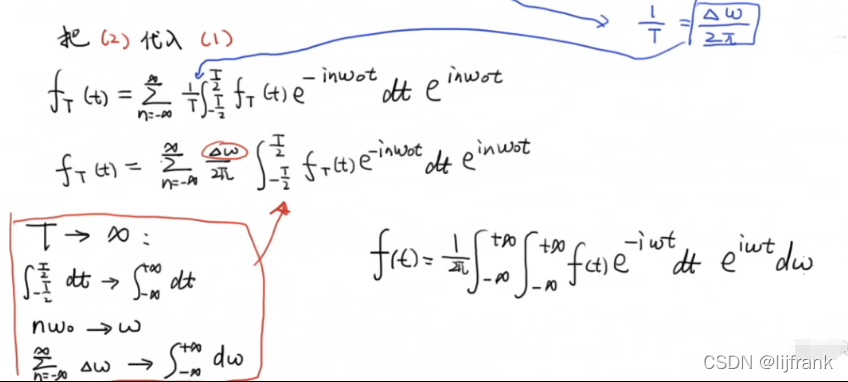 1/T = Δω/2π
把 (2) 代入 (1)
f_T(t) = ∑_{n=-∞}^{∞} 1/T ∫_{-T/2}^{T/2} f_T(t) e^{-inω₀t} dt e^{inω₀t}
f_T(t) = ∑_{n=-∞}^{∞} Δω/2π ∫_{-T/2}^{T/2} f_T(t) e^{-inω₀t} dt e^{inω₀t}
T → ∞ :
∫_{-T/2}^{T/2} dt → ∫_{-∞}^{+∞} dt
nω₀ → ω
∑_{n=-∞}^{∞} Δω → ∫_{-∞}^{+∞} dω
f(t) = 1/2π ∫_{-∞}^{+∞} ∫_{-∞}^{+∞} f(t) e^{-iωt} dt e^{iωt} dω
CSDN @lijfrank